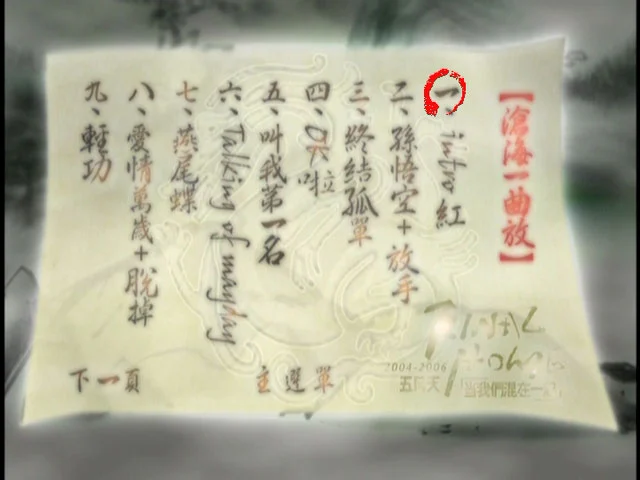 【滄海一曲放】
一、intro 紅
二、孫悟空+放手
三、終結孤單
四、OK啦
五、叫我第一名
六、Talking of mayday
七、燕尾蝶
八、愛情萬歲+脫掉
九、輕功
FINAL
Home
2004-2006
五月天「當我們混在一起」
主選單
下一頁